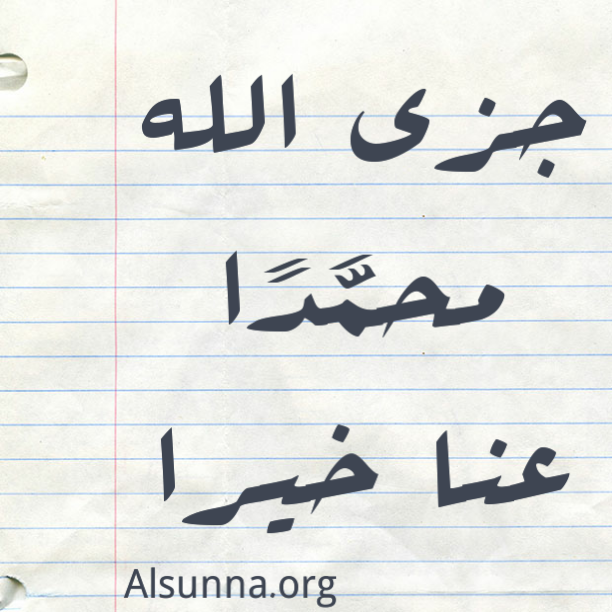 جزى الله
محمَّدًا
عنا خيرا
Alsunna.org